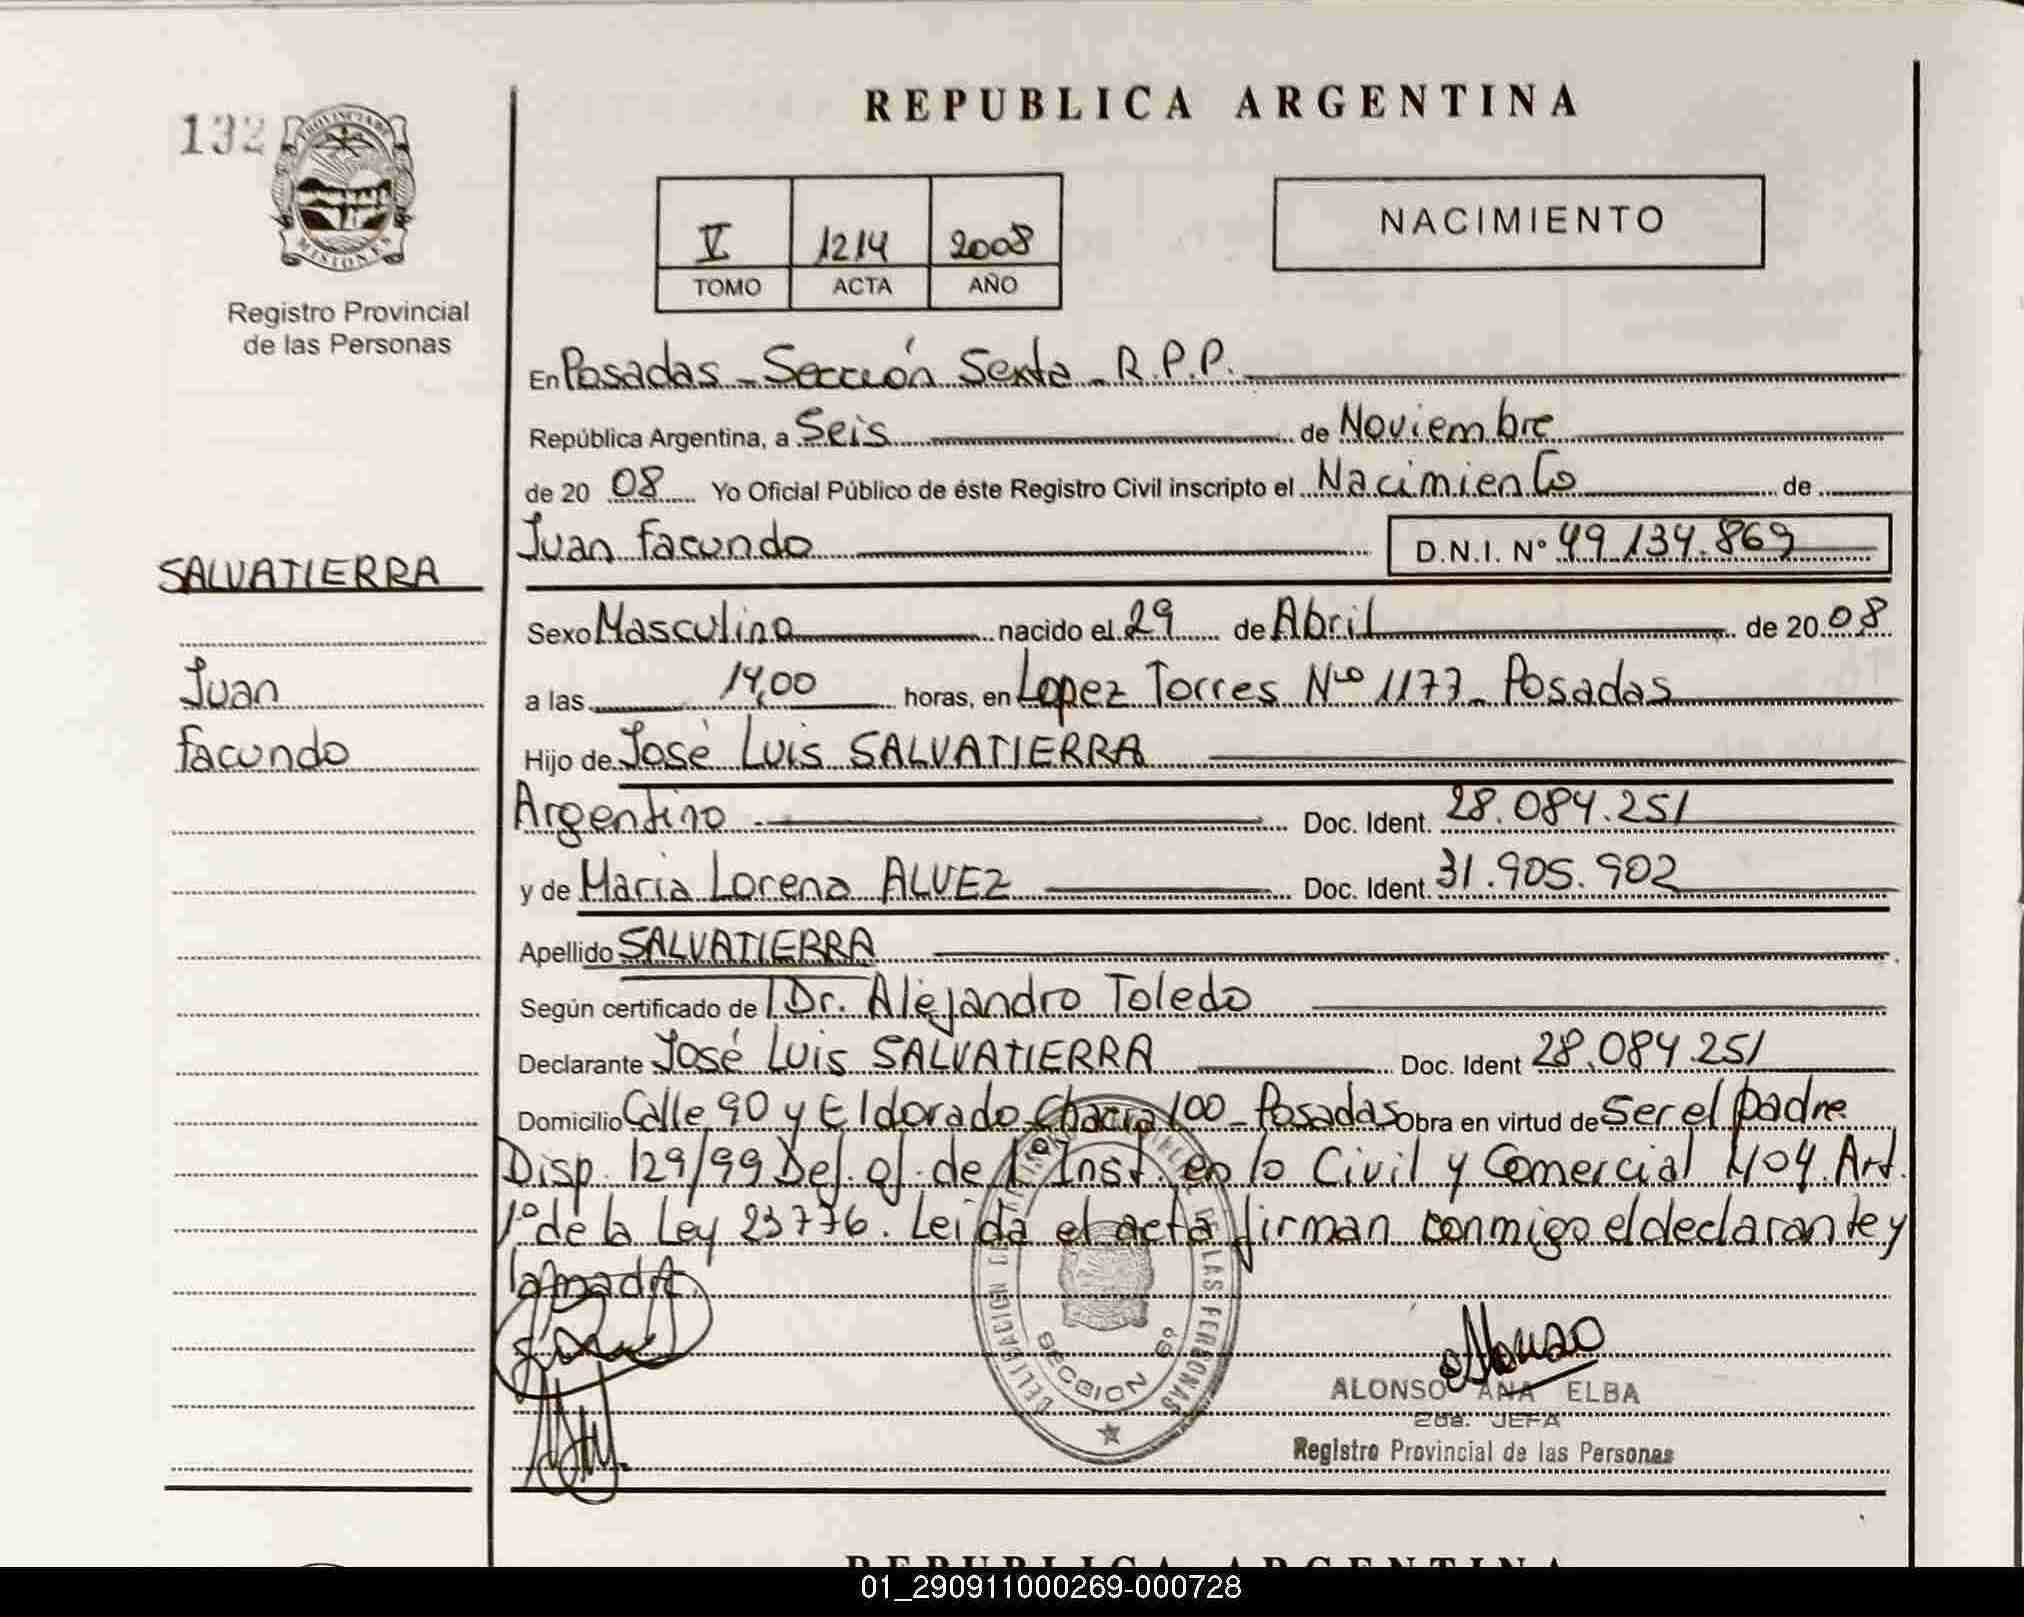 REPUBLICA ARGENTINA
132
PROVINCIA DE
MISIONES
Registro Provincial
de las Personas
V 1214 2008
TOMO ACTA AÑO
NACIMIENTO
En Posadas - Sección Sexta - R.P.P.
República Argentina, a Seis de Noviembre
de 20 08 Yo Oficial Público de éste Registro Civil inscripto el Nacimiento de
Juan Facundo D.N.I. Nº 49.134.869
SALVATIERRA
Juan
Facundo
Sexo Masculino nacido el 29 de Abril de 20 08
a las 14,00 horas, en Lopez Torres Nº 1177 - Posadas
Hijo de José Luis SALVATIERRA
Argentino Doc. Ident. 28.084.251
y de Maria Lorena ALVEZ Doc. Ident. 31.905.902
Apellido SALVATIERRA
Según certificado de Dr. Alejandro Toledo
Declarante José Luis SALVATIERRA Doc. Ident 28.084.251
Domicilio Calle 90 y Eldorado Chacra 100 - Posadas Obra en virtud de ser el padre
Disp. 129/99 Def. of. de 1º Inst. en lo Civil y Comercial Nº 04. Art.
1º de la Ley 23776. Leida el acta firman conmigo el declarante y
la madre.
DE LAS PERSONAS
SECCION 6º
ALONSO ANA ELBA
2da. JEFA
Registro Provincial de las Personas
REPUBLICA ARGENTINA
01_290911000269-000728